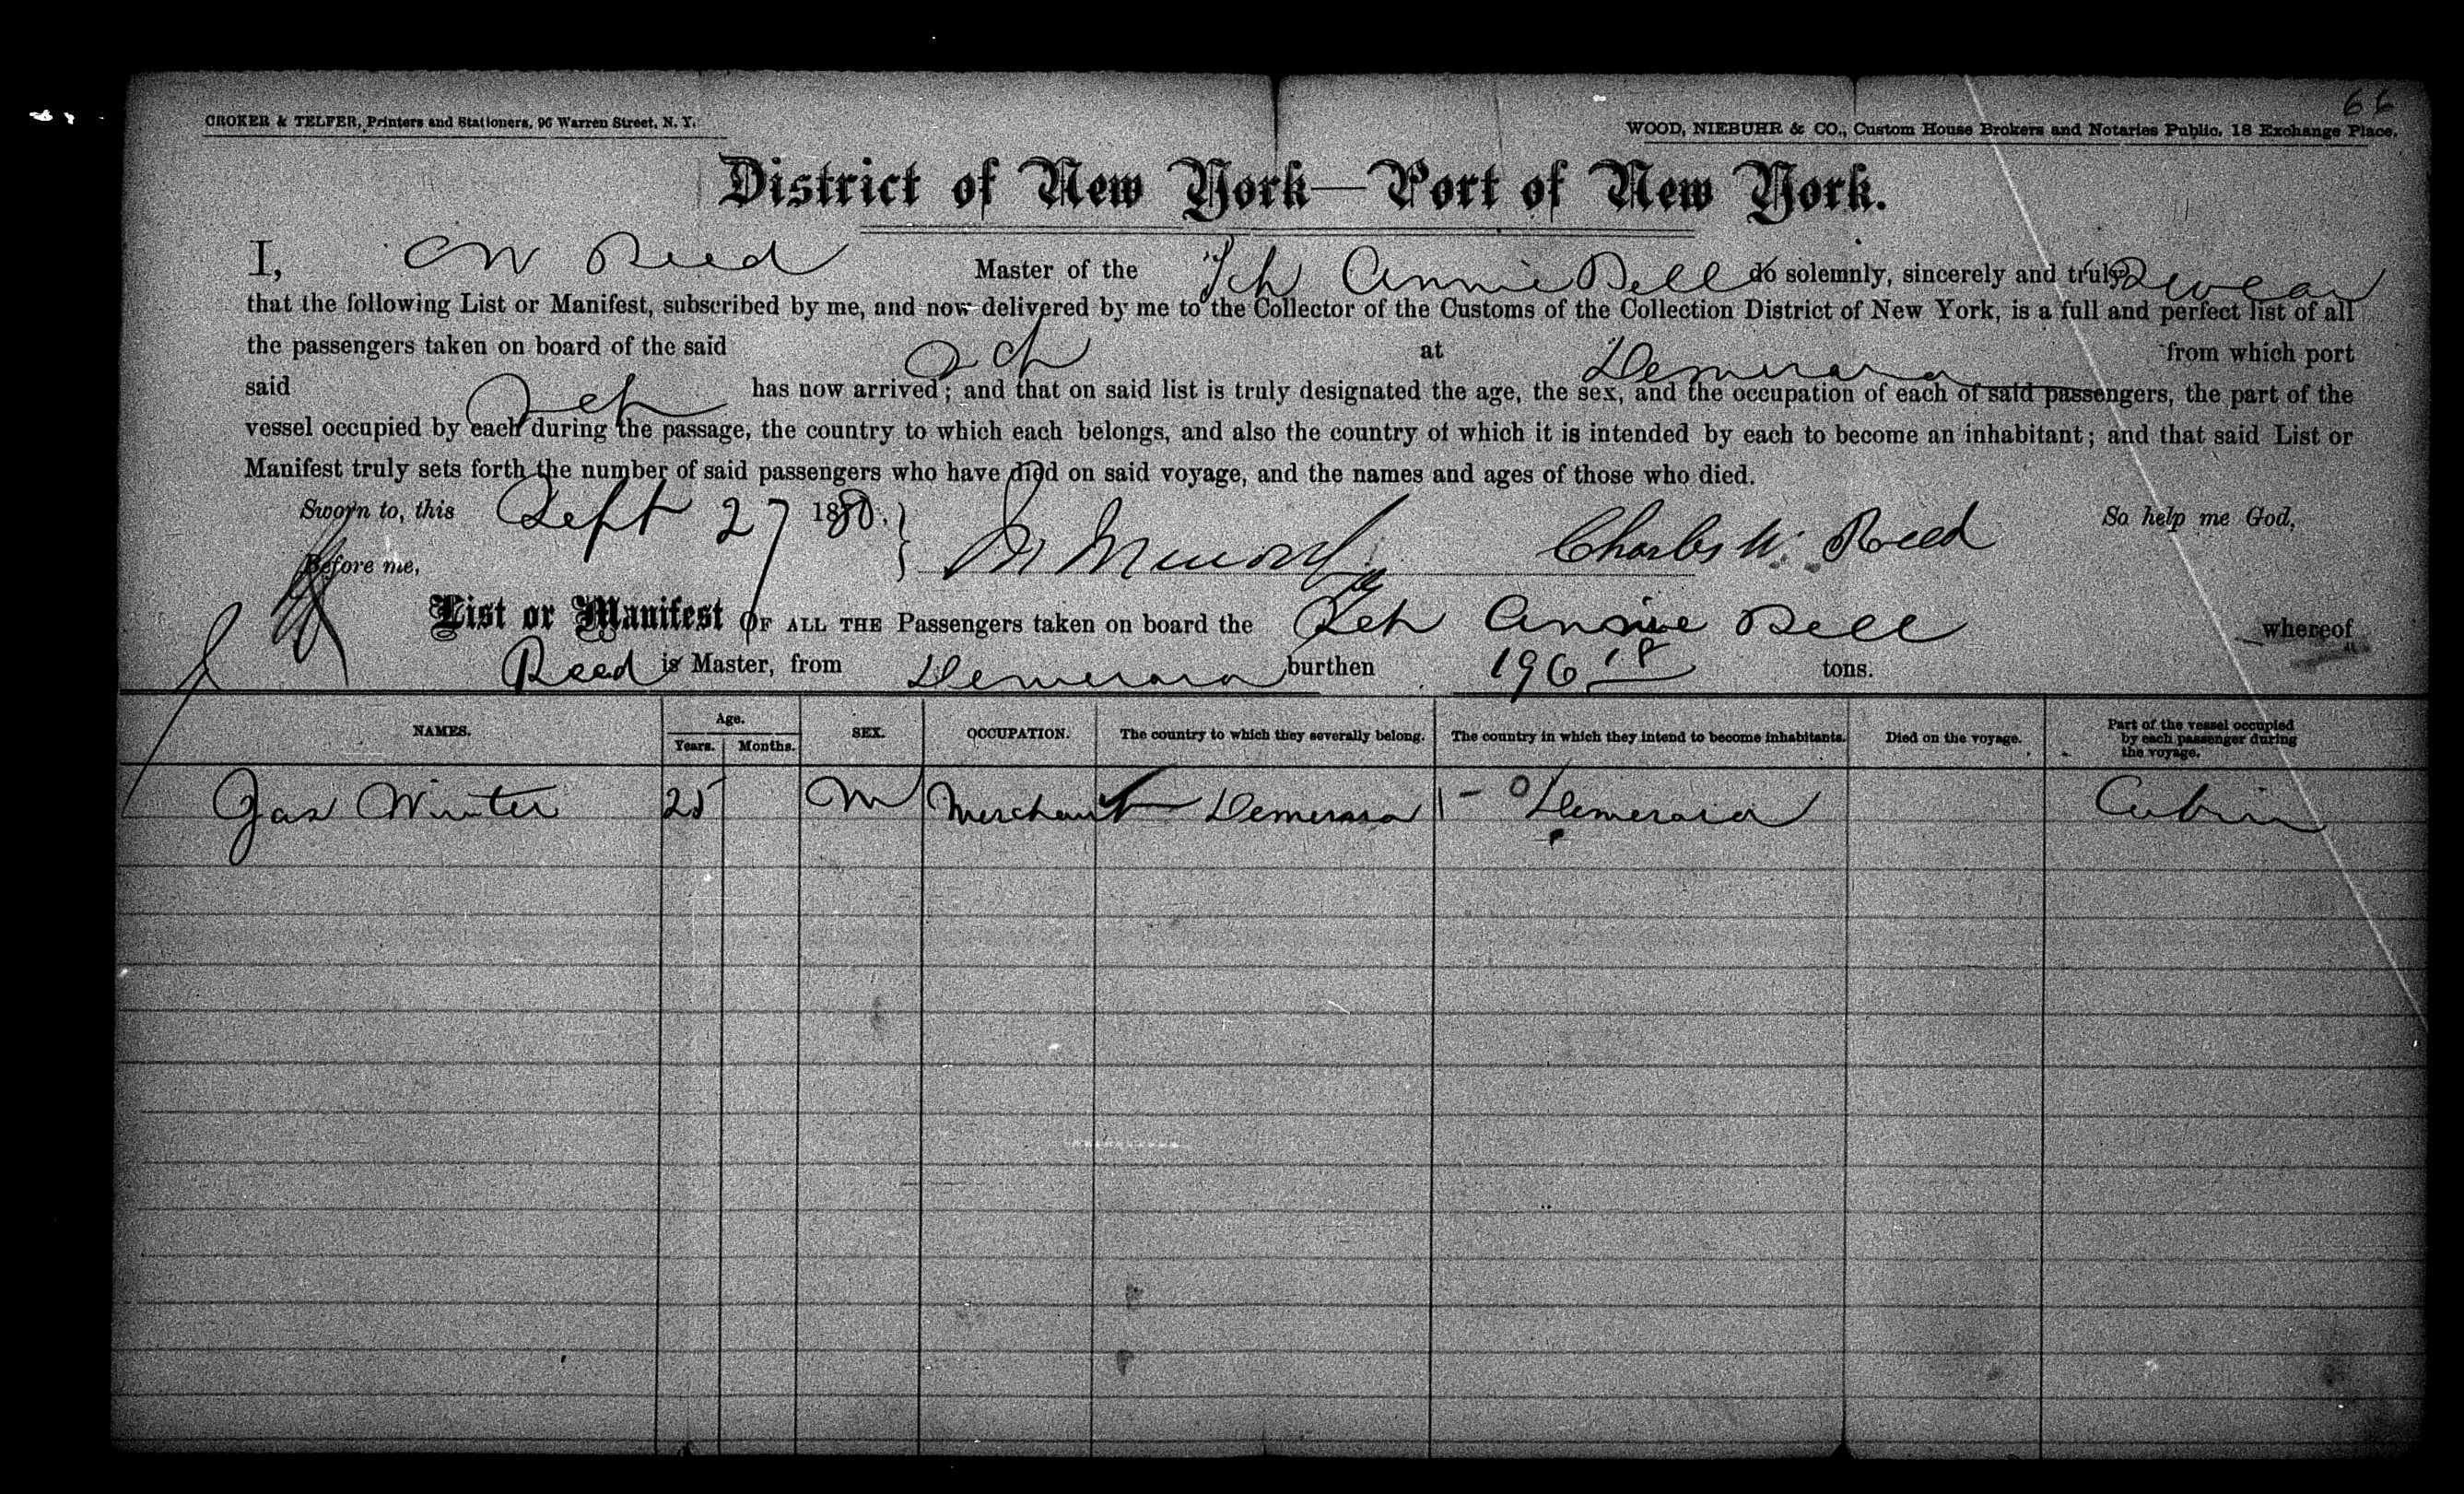 66
CROKER & TELFER, Printers and Stationers, 96 Warren Street, N. Y.
WOOD, NIEBUHR & CO., Custom House Brokers and Notaries Public, 18 Exchange Place.
District of New York—Port of New York.
I, C W Reed Master of the Sch Annie Bell do solemnly, sincerely and truly Swear
that the following List or Manifest, subscribed by me, and now delivered by me to the Collector of the Customs of the Collection District of New York, is a full and perfect list of all
the passengers taken on board of the said Sch at Demerara from which port
said Sch has now arrived; and that on said list is truly designated the age, the sex, and the occupation of each of said passengers, the part of the
vessel occupied by each during the passage, the country to which each belongs, and also the country of which it is intended by each to become an inhabitant; and that said List or
Manifest truly sets forth the number of said passengers who have died on said voyage, and the names and ages of those who died.
Sworn to, this Sept 27 1880. Charles W. Reed So help me God,
Before me,
List or Manifest OF ALL THE Passengers taken on board the Sch Annie Bell whereof
Reed is Master, from Demerara burthen 196 18 tons.
NAMES. Age. Years. Months. SEX. OCCUPATION. The country to which they severally belong. The country in which they intend to become inhabitants. Died on the voyage. Part of the vessel occupied by each passenger during the voyage.
Jas Winter 25 M Merchant Demerara Demerara Cabin